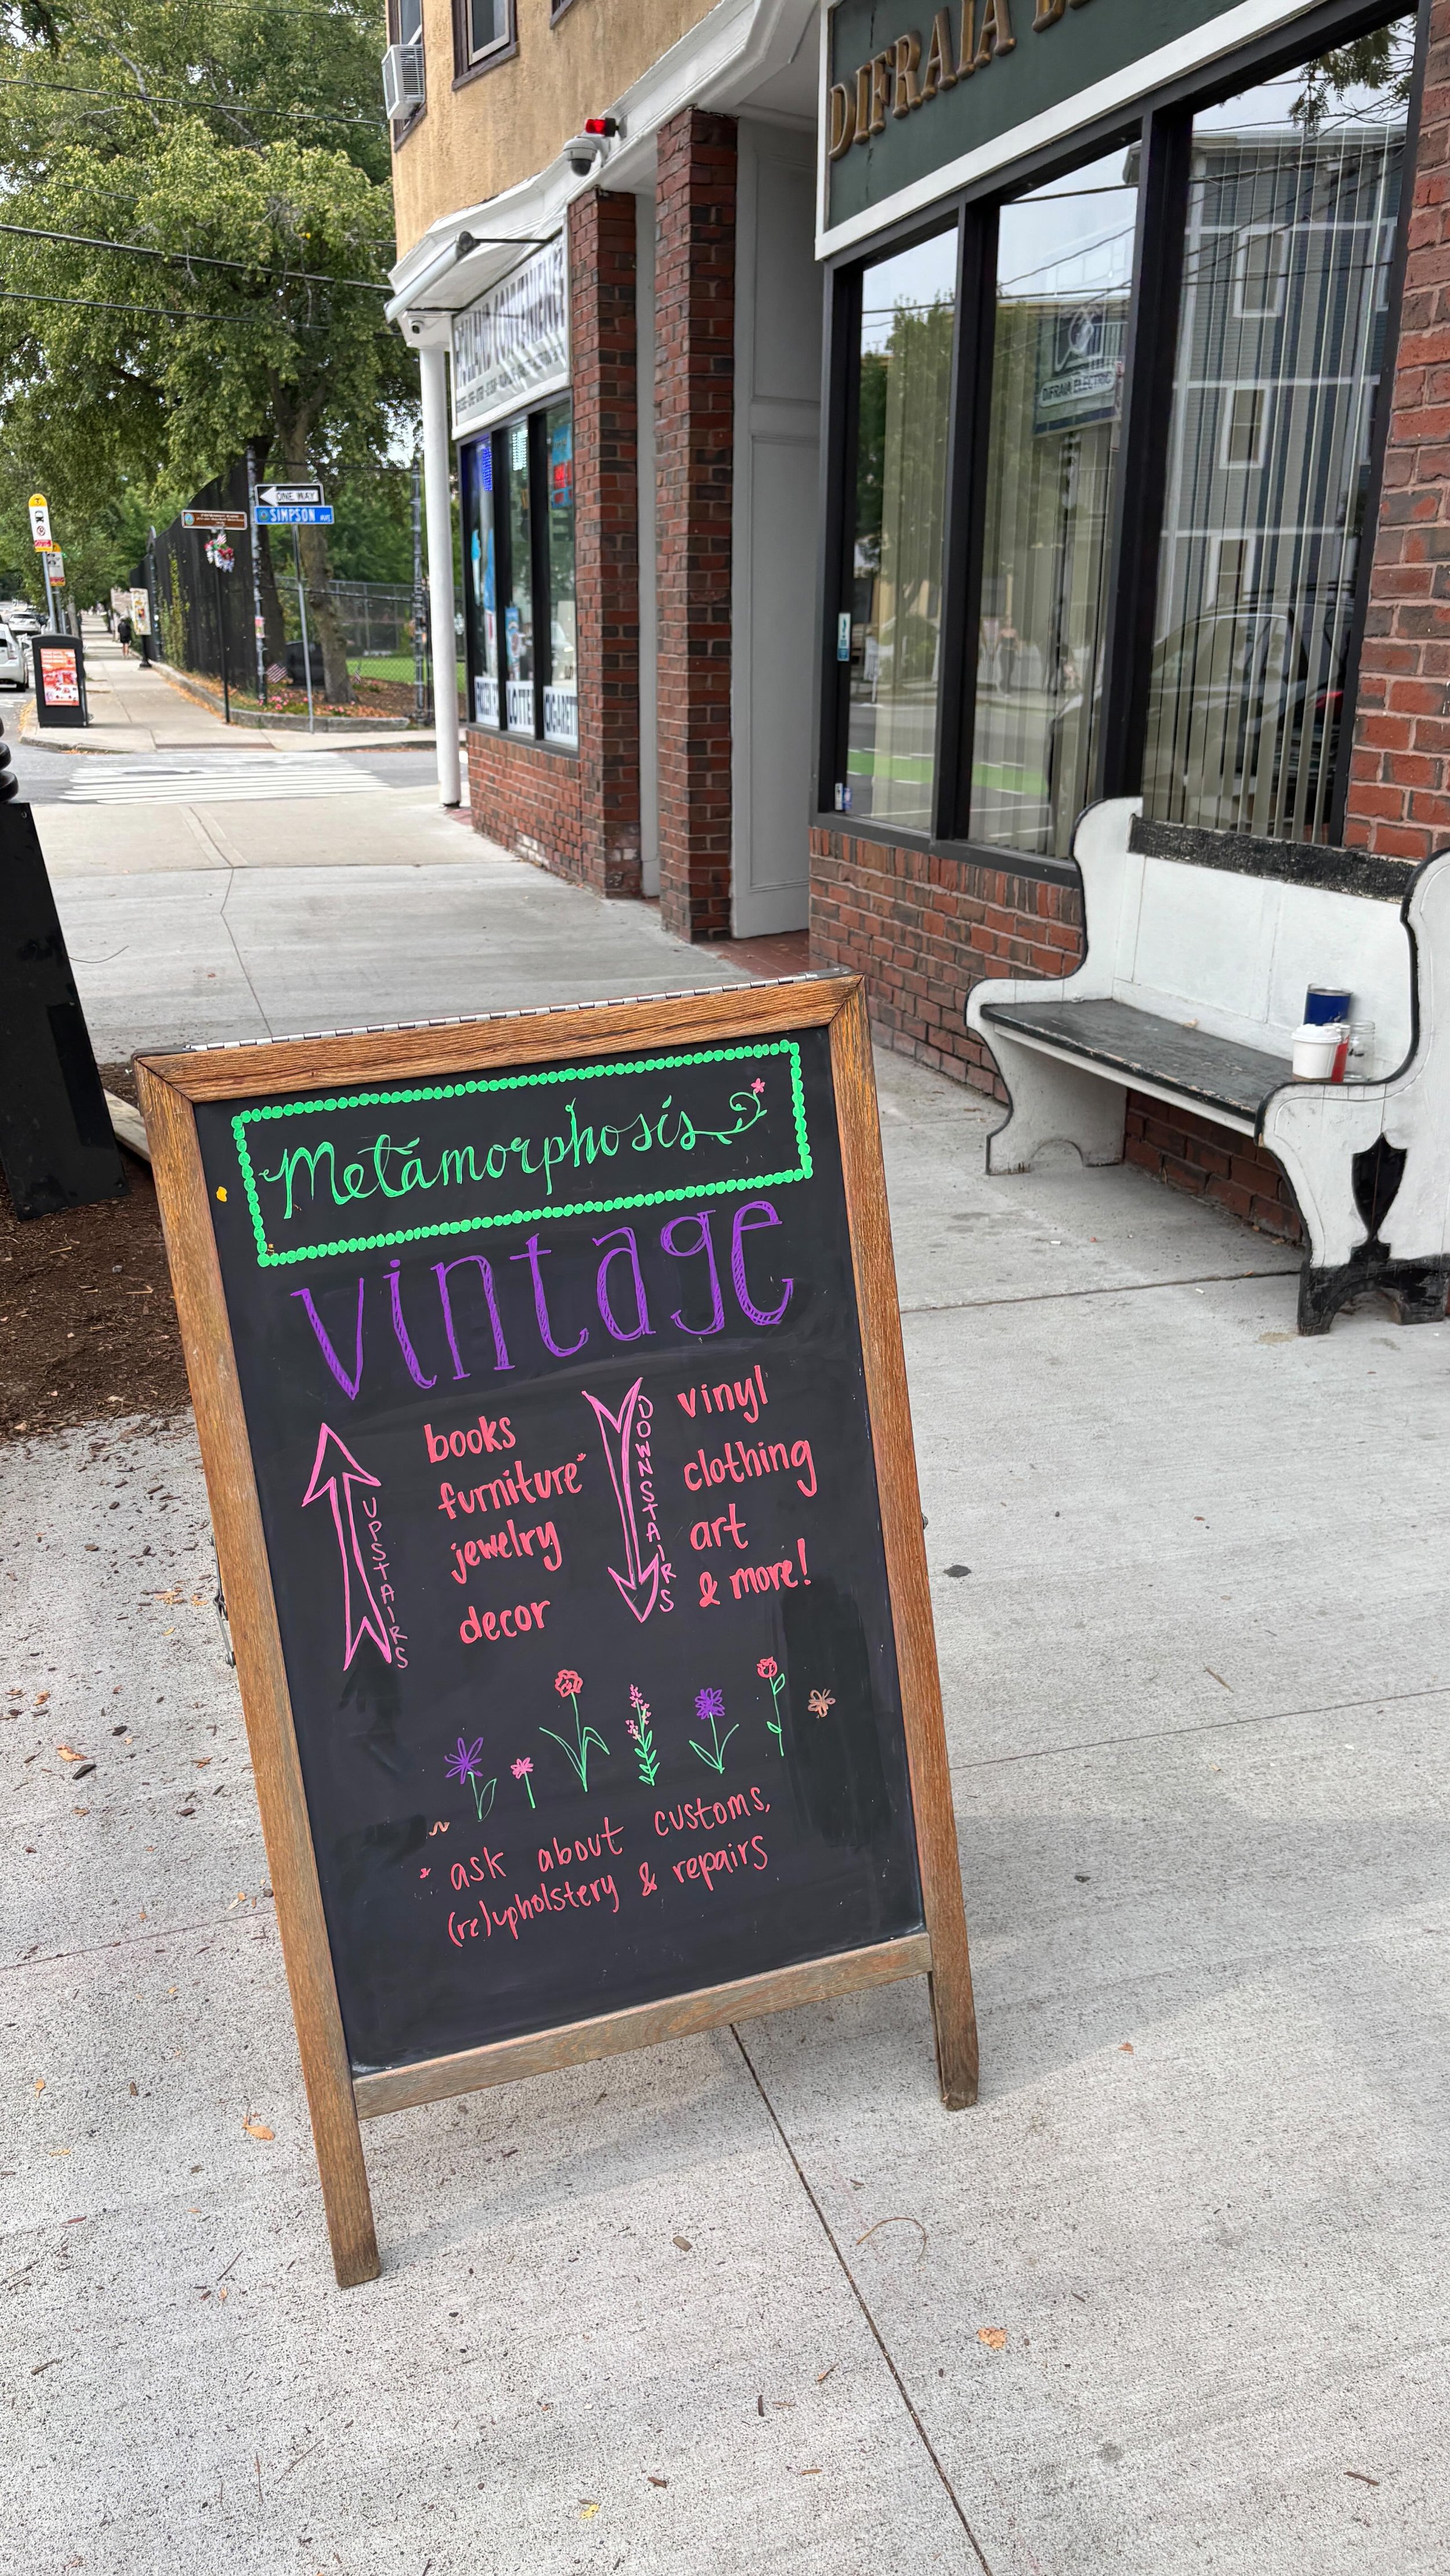 DIFRAIA
CONVENIENCE
DIFRAIA ELECTRIC
ONE WAY
SIMPSON AVE
Metamorphosis
vintage
UPSTAIRS
books
furniture*
jewelry
decor
DOWNSTAIRS
vinyl
clothing
art
& more!
* ask about customs,
(re)upholstery & repairs